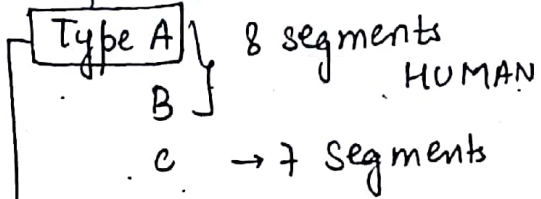 Type A } 8 segments
HUMAN
B
C → 7 segments